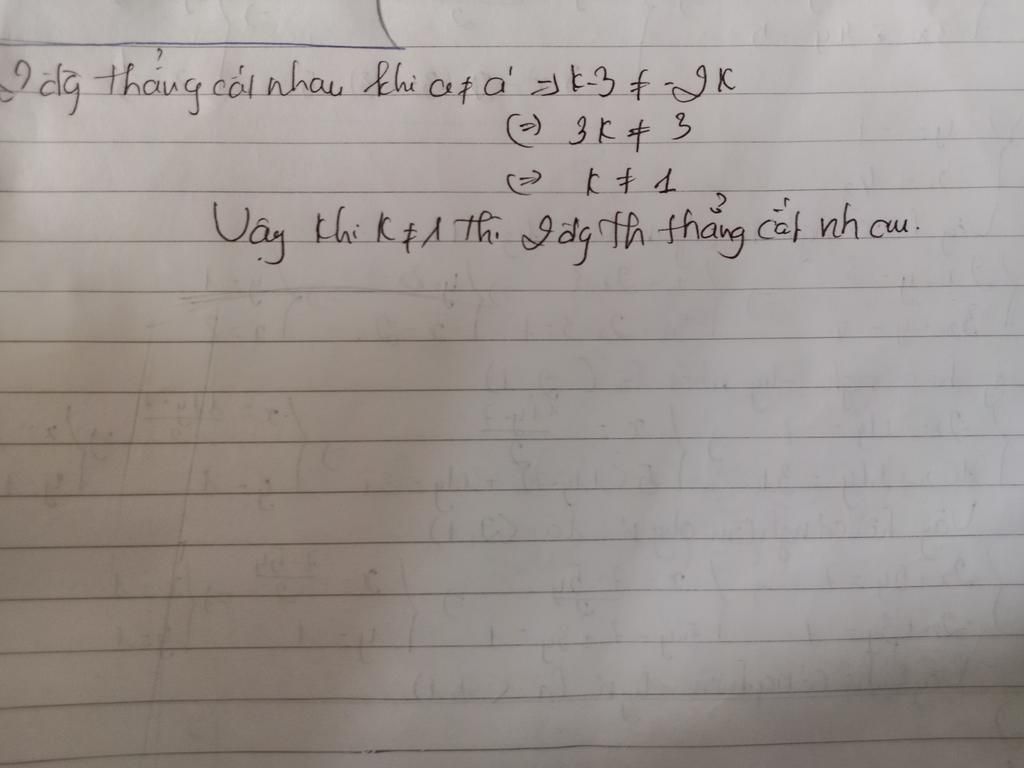 2 đg thẳng cắt nhau khi a ≠ a' => k-3 ≠ -2k
<=> 3k ≠ 3
<=> k ≠ 1
Vậy khi k ≠ 1 thì 2 đg th thẳng cắt nhau.